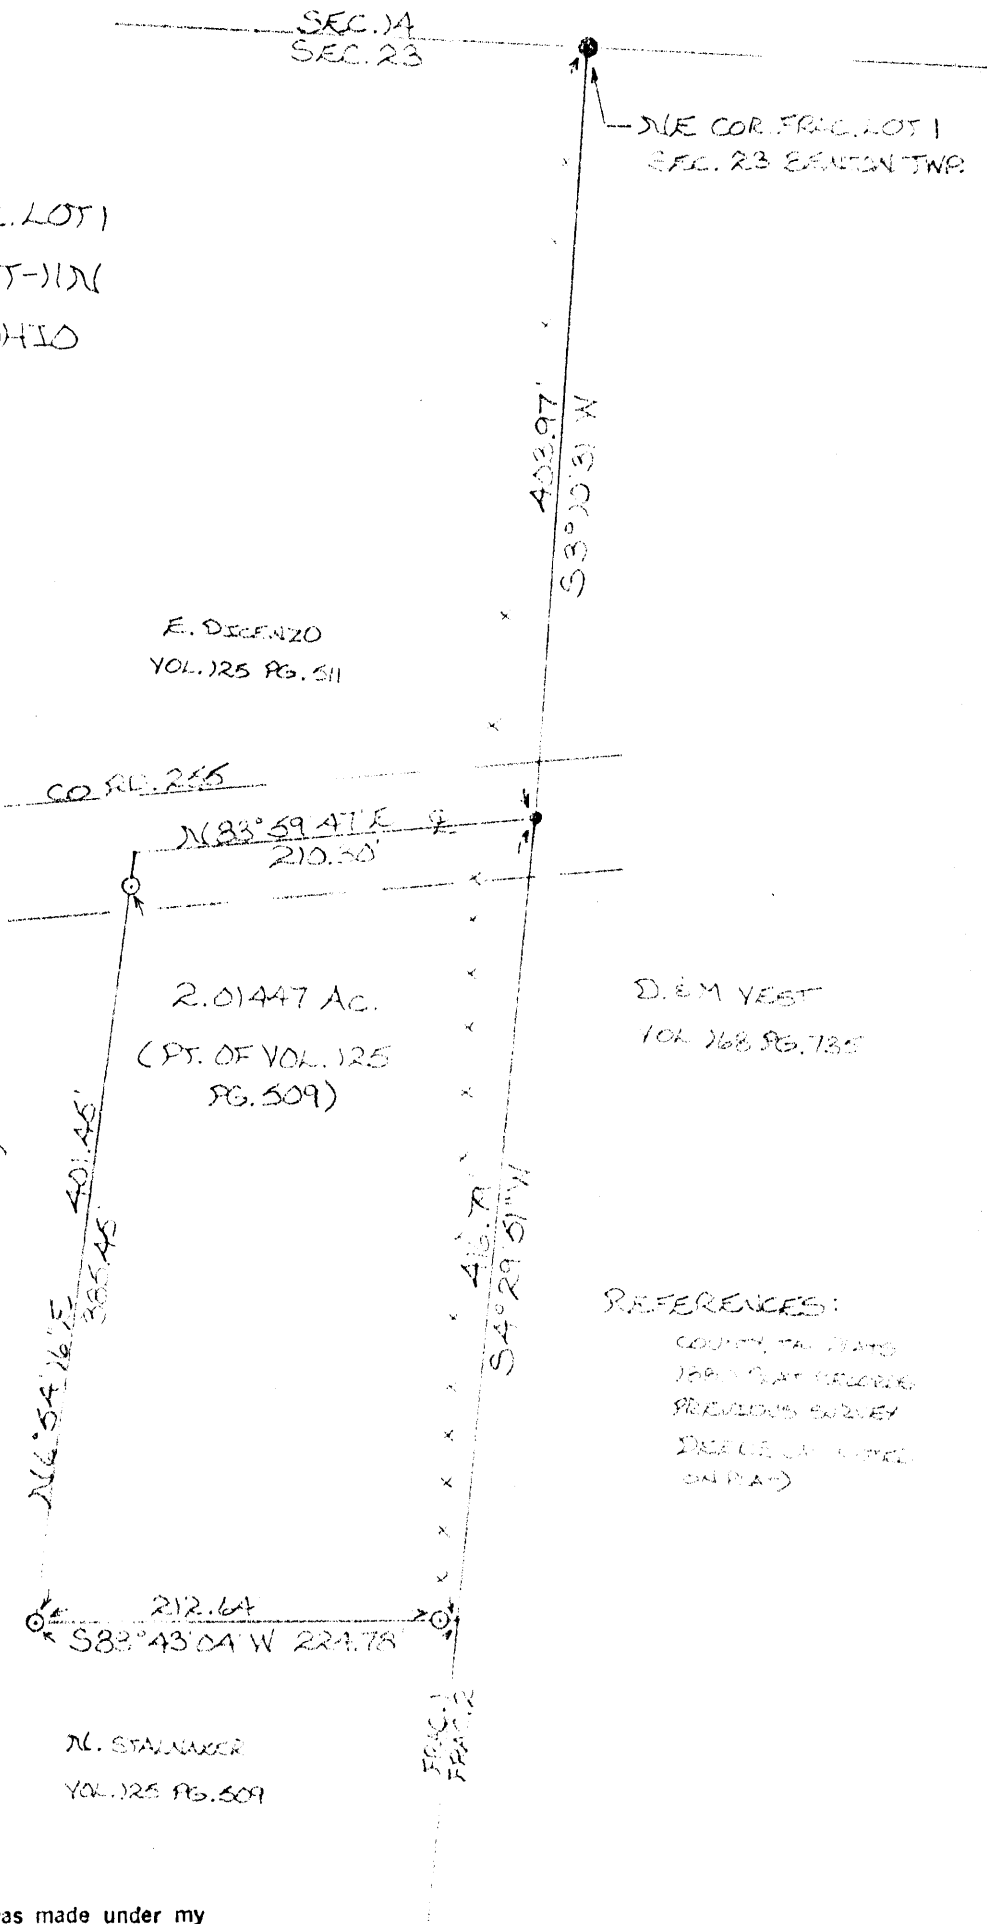 SEC. 14
SEC. 23
NE COR. FRAC. LOT 1
SEC. 23 BENTON TWP.
. LOT 1
T-11N
OHIO
403.97'
S3°10'31 W
E. DICENZO
VOL. 125 PG. 511
CO RD. 255
N83°59'47"E ℄
210.30'
2.01447 AC.
(PT. OF VOL. 125
PG. 509)
D. & M VEST
VOL 168 PG. 735
401.45'
385.45'
N6°54'16"E
416.71'
S4°29'51"W
REFERENCES:
COUNTY TAX PLATS
PLAT RECORDS
PREVIOUS SURVEY
ON PLAT)
212.64
S88°43'04"W 224.78'
FRAC. 1
FRAC. 2
N. STALNAKER
VOL. 125 PG. 509
as made under my